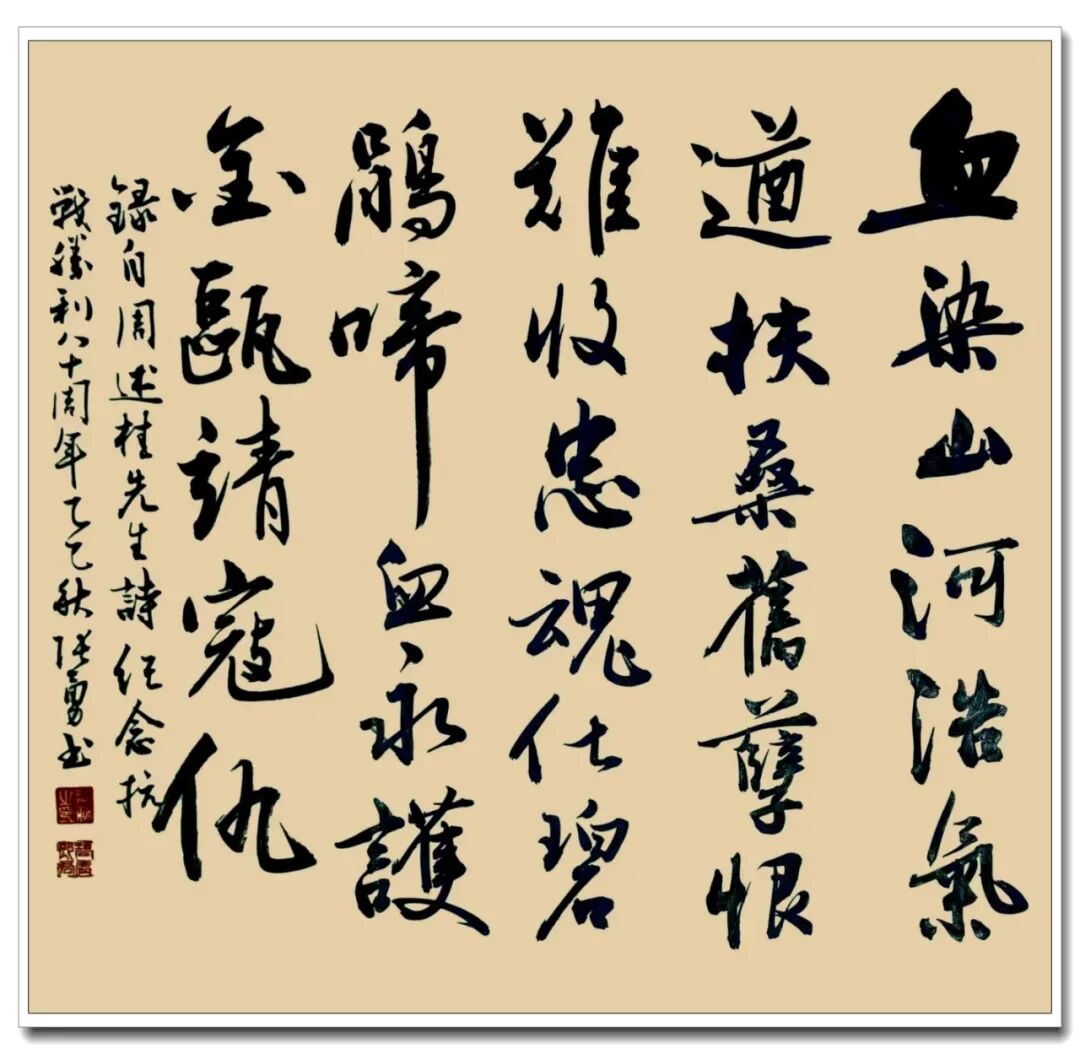 血染山河浩氣
遒扶桑舊孽恨
難收忠魂化碧
鵑啼血永護
金甌靖寇仇
錄自周述桂先生詩纪念抗
戰勝利八十周年乙巳秋张勇书